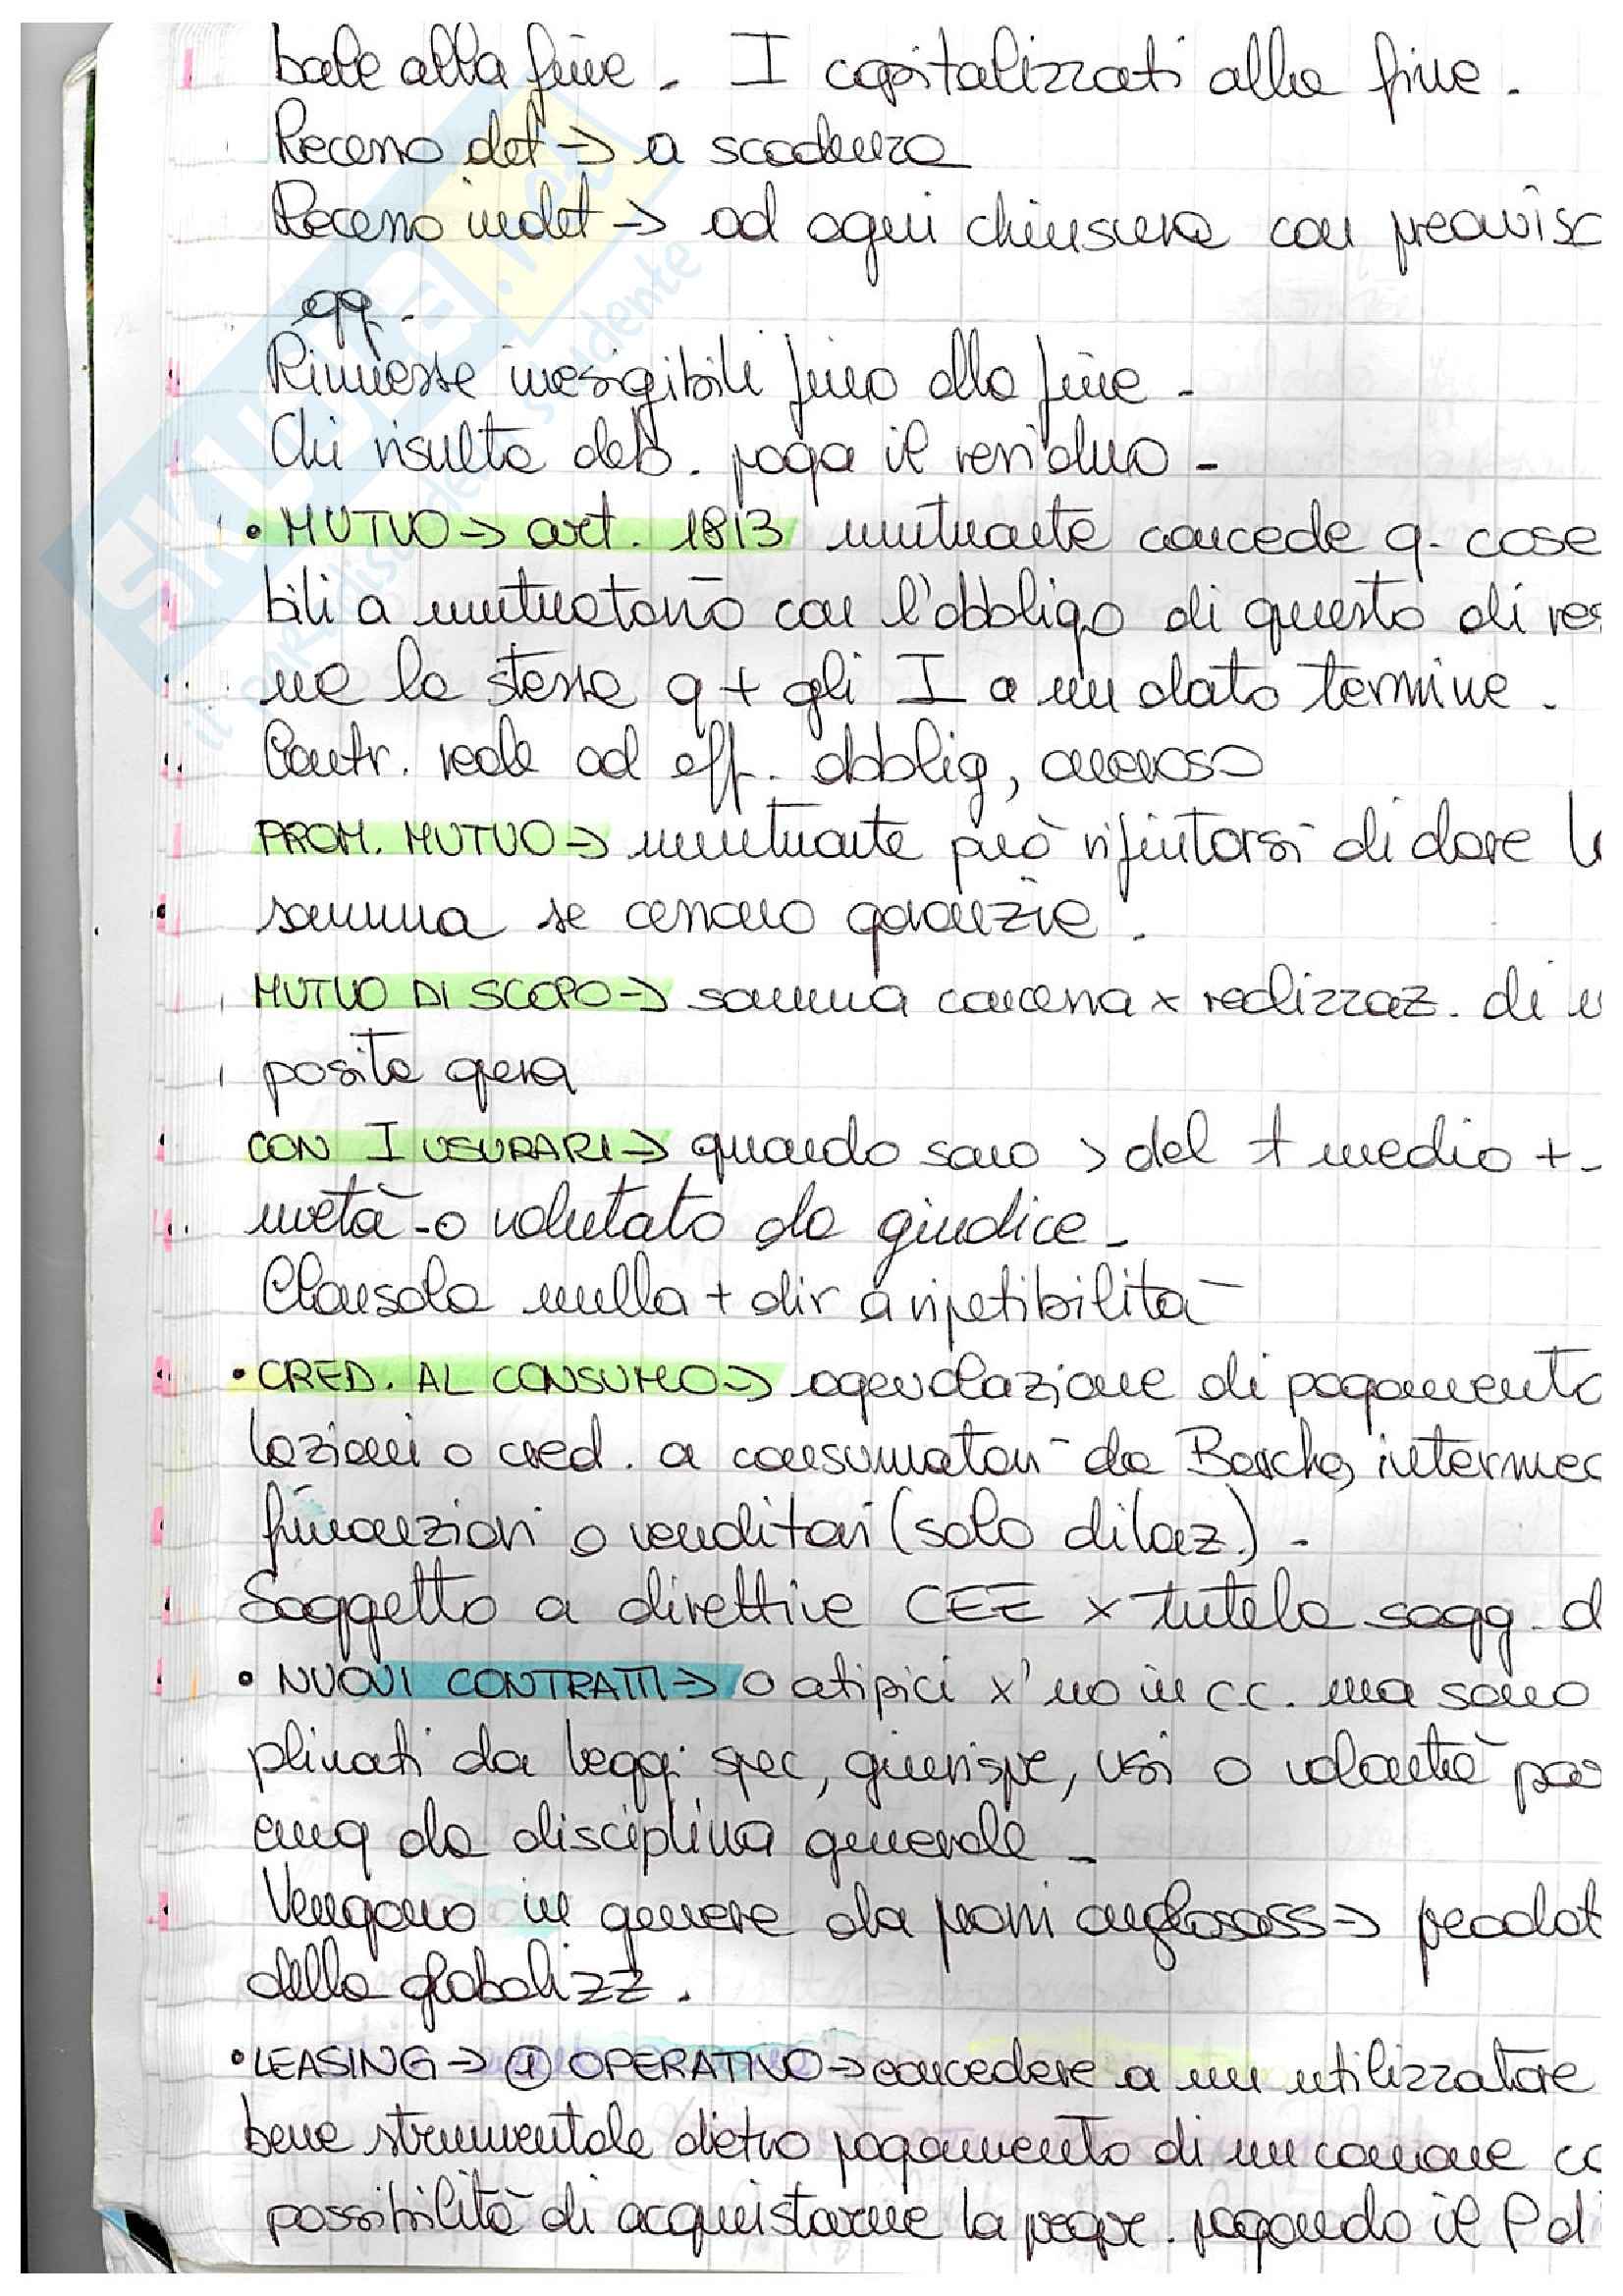 bale alla fine. I capitalizzati alla fine.
Recesso det → a scadenza
Recesso indet → ad ogni chiusura con preavviso
gg.
Rimesse inesigibili fino alla fine -
Chi risulta deb. paga il residuo -
• MUTUO → art. 1813 mutuante concede q. cose
bili a mutuatario con l'obbligo di questo di res
ne la stessa q + gli I a un dato termine.
Contr. reale ad eff. obblig, oneroso
PROM. MUTUO → mutuante può rifiutarsi di dare la
somma se cessano garanzie.
MUTUO DI SCOPO → somma concessa x realizzaz. di
posita
CON I USURARI → quando sono > del t medio +
metà - o valutato da giudice -
Clausola nulla + dir a ripetibilità
• CRED. AL CONSUMO → agevolazione di pagamento
lazioni o cred. a consumatori da Banche, intermed
finanziari o venditori (solo dilaz.) -
Soggetto a direttive CEE x tutela sogg. d
• NUOVI CONTRATTI → o atipici x' no in c.c. ma sono
plinati da leggi spec, giurispr, usi o volontà par
cmq da disciplina generale -
Vengono in genere da paesi anglosass →
della globalizz.
• LEASING → ① OPERATIVO → concedere a un utilizzatore
bene strumentale dietro pagamento di un canone co
possibilità di acquistarne la propr. pagando il P di
SKUOLA.net
il paradiso dello studente